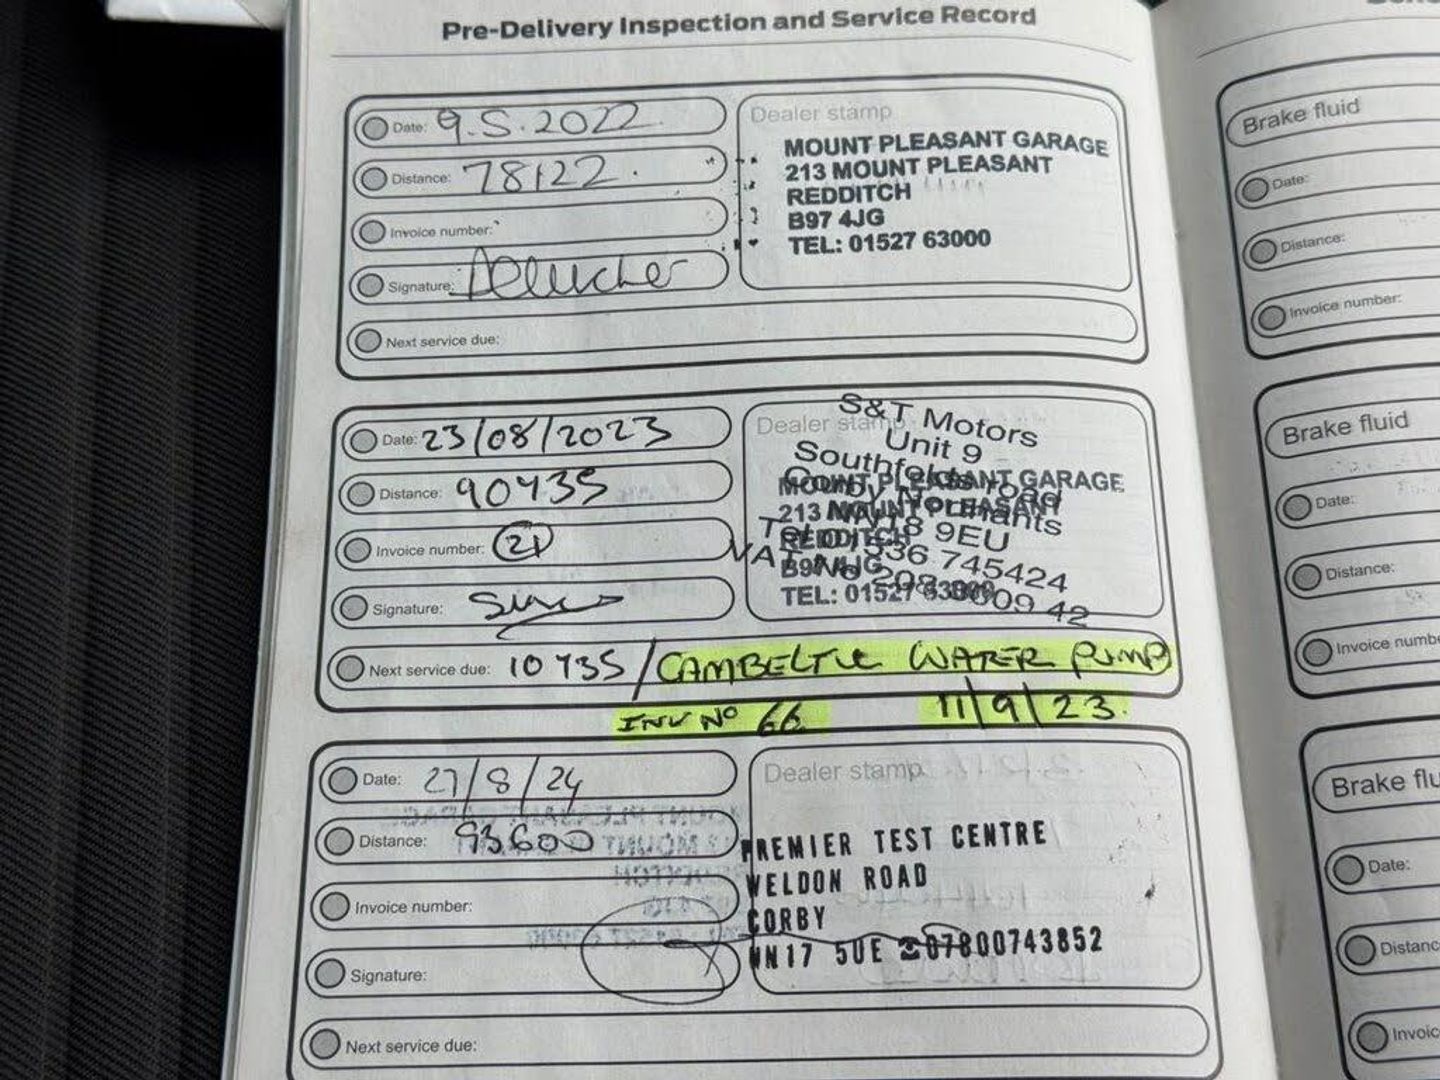 Pre-Delivery Inspection and Service Record
Date: 9.5.2022
Distance: 78122.
Invoice number:
Signature:
Next service due:
Dealer stamp
MOUNT PLEASANT GARAGE
213 MOUNT PLEASANT
REDDITCH
B97 4JG
TEL: 01527 63000
Date: 23/08/2023
Distance: 90435
Invoice number: 21
Signature:
Next service due: 10435 / CAMBELTK WATER PUMP
INV No 66 11/9/23.
Dealer stamp
S&T Motors
Unit 9
Southfields road
Corby Northants
NN18 9EU
Tel 01536 745424
VAT No 208 8009 42
MOUNT PLEASANT GARAGE
213 MOUNT PLEASANT
REDDITCH
B97 4JG
TEL: 01527 63000
Date: 27/8/24
Distance: 93600
Invoice number:
Signature:
Next service due:
Dealer stamp
PREMIER TEST CENTRE
WELDON ROAD
CORBY
NN17 5UE ☎07800743852
Brake fluid
Date:
Distance:
Invoice number:
Brake fluid
Date:
Distance:
Invoice numb
Brake flu
Date:
Distanc
Invoic